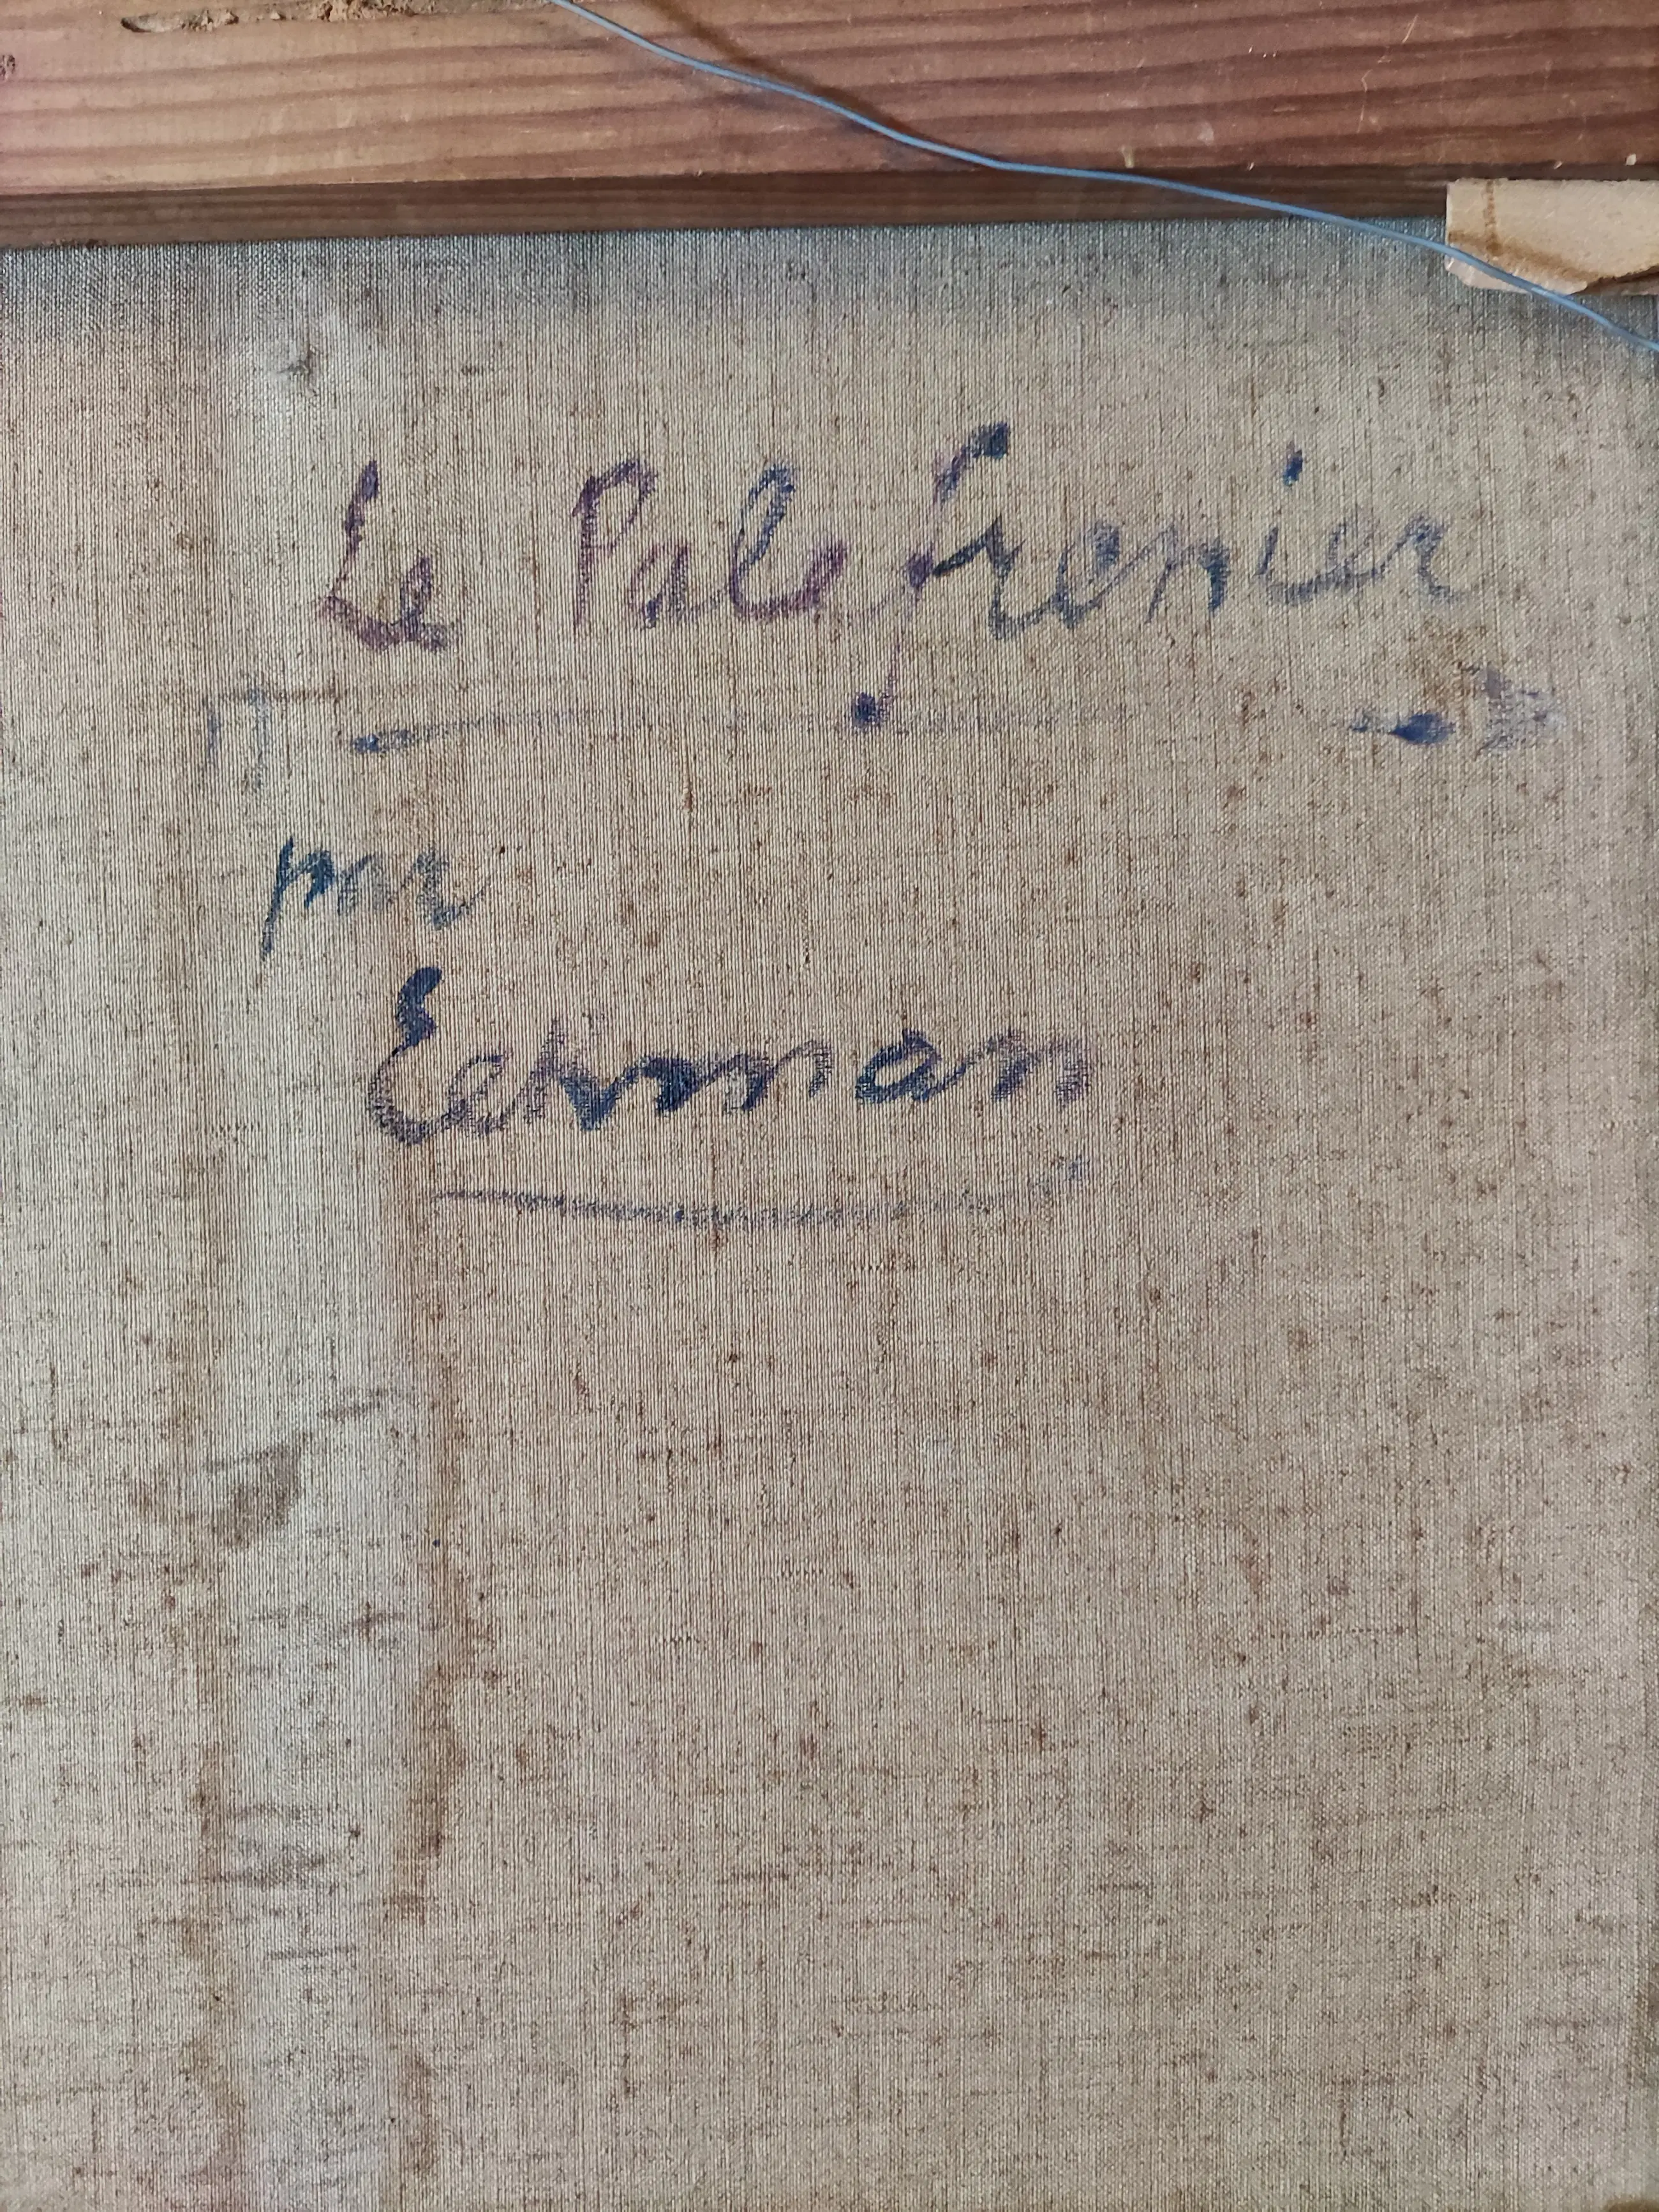 Le Palefrenier
par
Eekman